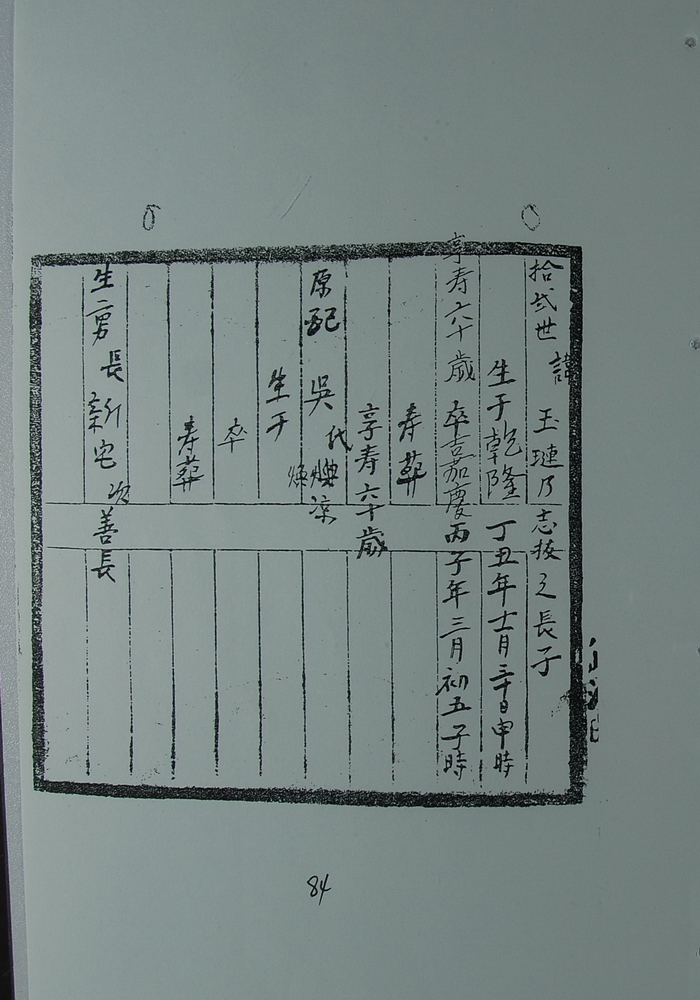 拾弍世 諱 玉璉乃志拔之長子
生于乾隆 丁丑年十一月三十日申時
享寿六十歲 卒嘉慶丙子年三月初五子時
寿葬
享寿六十歲
原配 吳氏
生于
卒
寿葬
生二男 長 新宅 次善長
84